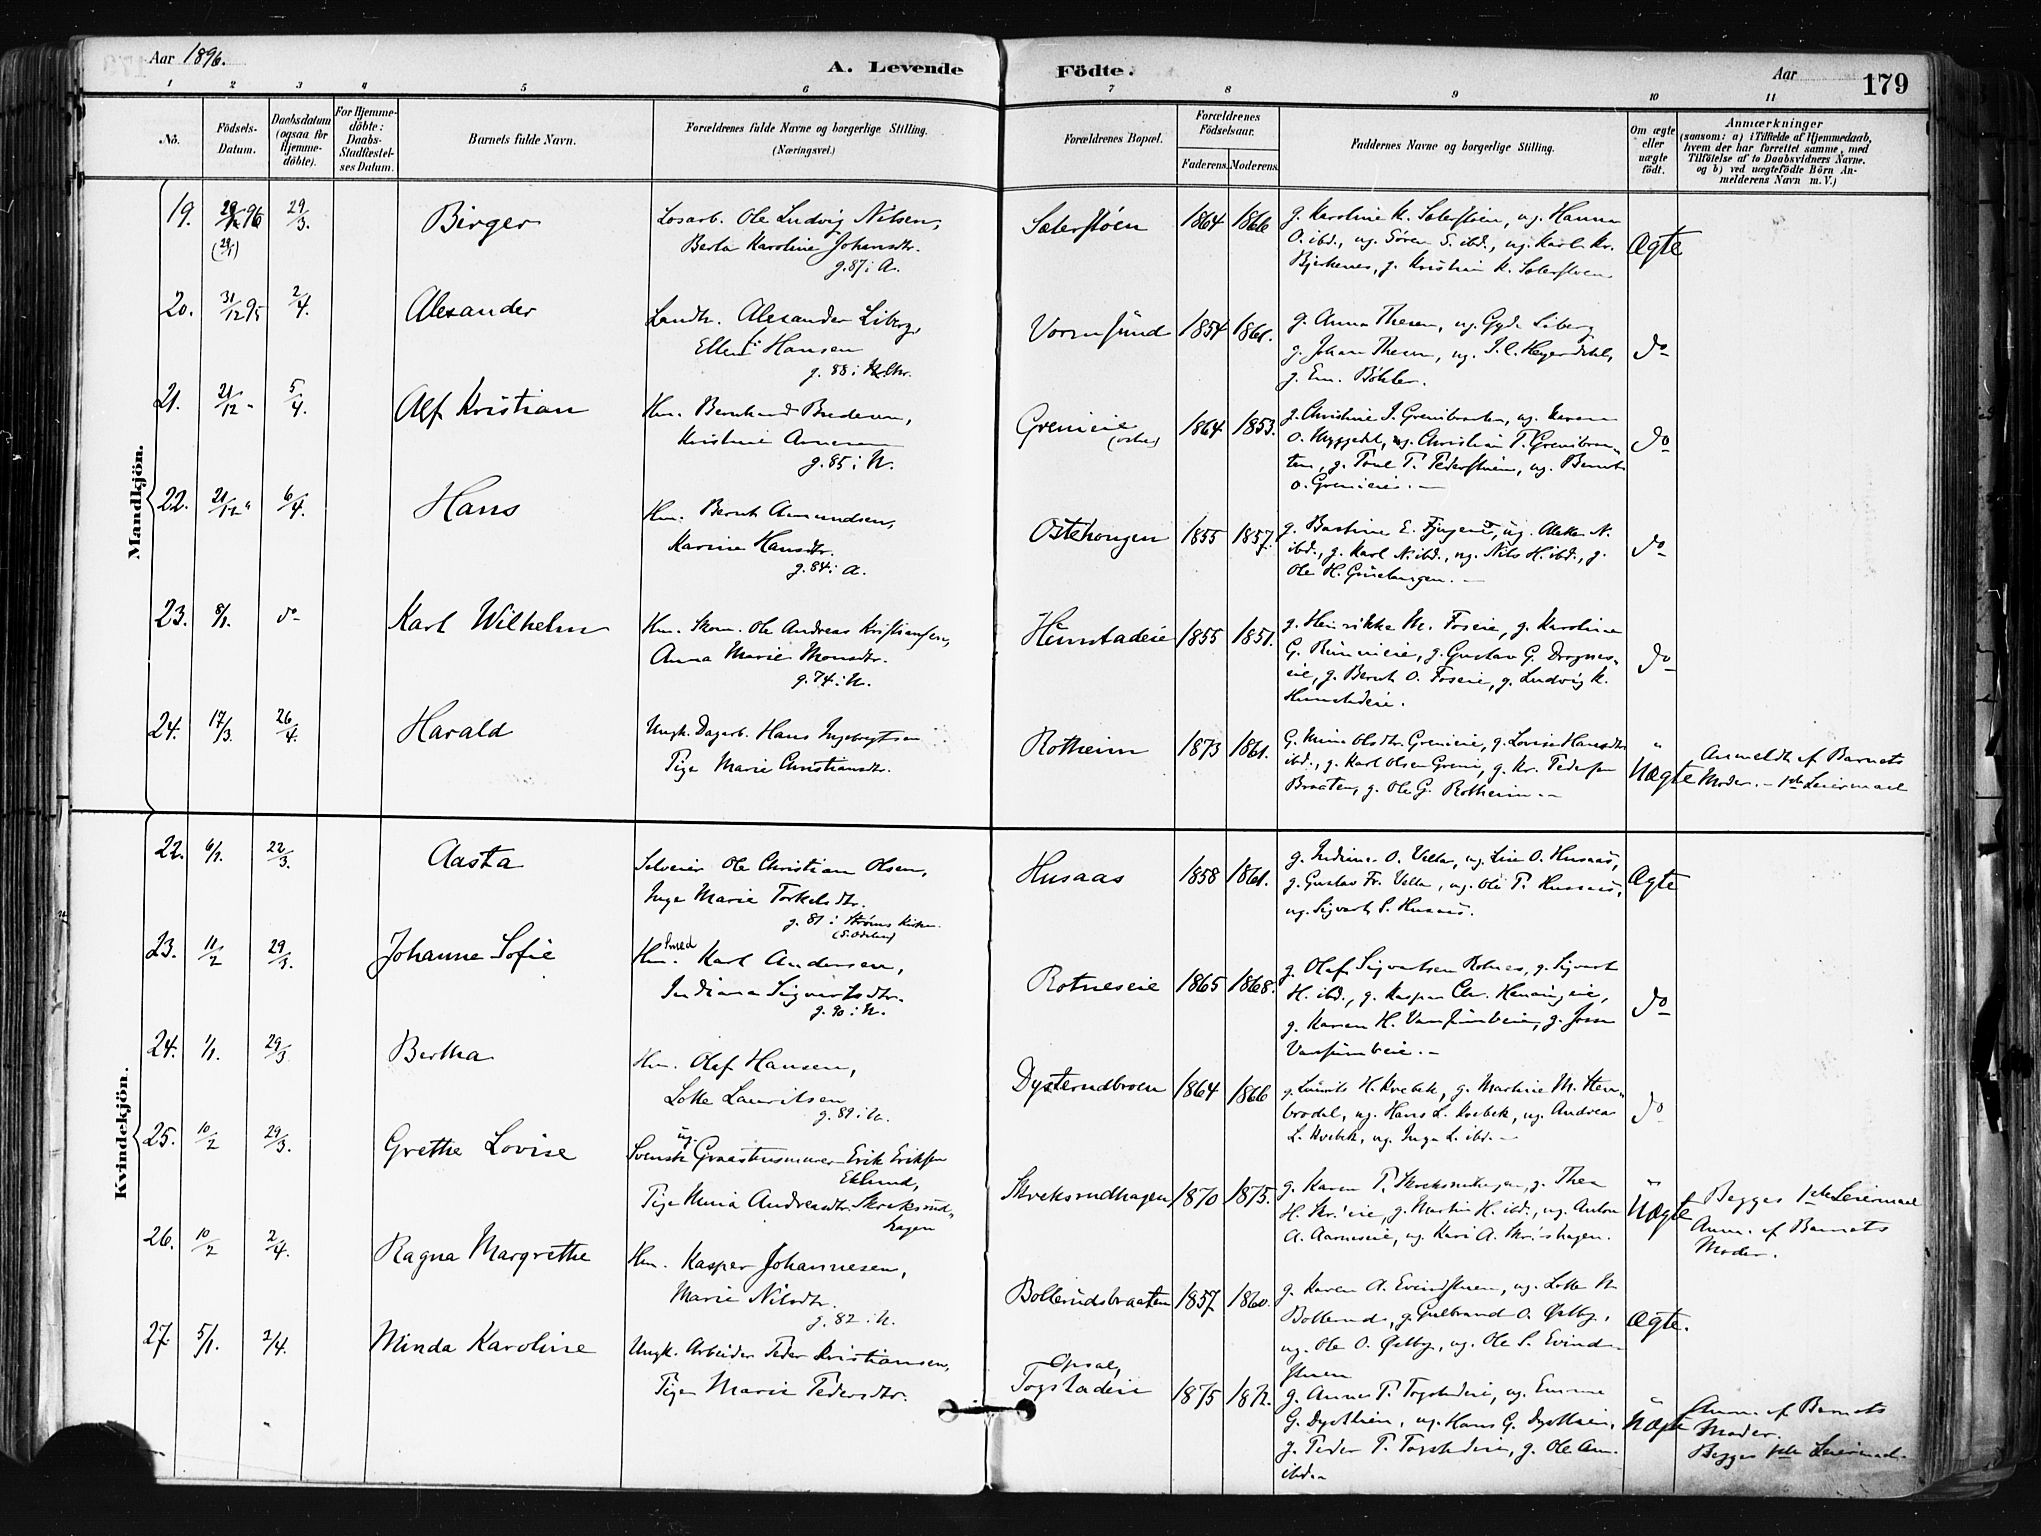 Aar 1896.
A. Levende Födte.
Aar
179
1 2 3 4 5 6 7 8 9 10 11
No.
Födsels-Datum.
Daabsdatum (ogsaa for Hjemme-döbte).
For Hjemme-döbte: Daabs-Stadfæstel-ses Datum.
Barnets fulde Navn.
Forældrenes fulde Navne og borgerlige Stilling.
(Næringsvei.)
Forældrenes Bopæl.
Forældrenes Födselsaar.
Faderens. Moderens.
Faddernes Navne og borgerlige Stilling.
Om ægte eller uægte födt.
Anmærkninger
(saasom: a) i Tilfælde af Hjemmedaab,
hvem der har forrettet samme, med
Tilföielse af to Daabsvidners Navne.
og b) ved uægtefödte Börn An-
melderens Navn m. V.)
Mandkjön.
19. 29/3. Birger
Losarb. Ole Ludvig Nilsen,
Berta Karoline Johansdtr.
g. 87 i A.
Sæterstøen 1864 1866
g. Karoline K. Sæterstøen, ug. Hanna
O. ibd., ug. Søren S. ibd., ug. Karl Kr.
Bjerkenes, g. Kristian K. Sæterstøen
Ægte
20. 31/12 95 2/4. Alexander
Landh. Alexander Liberg,
Hansen
Vormsund 1854 1861.
g. Anna Thesen, ug. Gyda Liberg
g. Johan Thesen, ug. J. C. Heyerdahl,
g. Em. Böhler.
do
21. 21/12 " 5/4. Alf Kristian
Hm. Bernhard Pedersen,
Kristine Arnesen
g. 85 i N.
Grenieie 1864 1853.
g. Christine J. Grenibraaten, ug. Karen
O. Christian T. Grenibraa-
ten, g. Poul T. Pederstuen, ug. Bernt
O. Grenieie. —
do
22. 21/12 " 6/4. Hans
Hm. Bernt Amundsen,
Karine Hansdtr.
g. 84 i A.
Ostehongen 1855 1857.
g. Bastine E. ug. N.
ibd., g. Karl N. ibd., ug. Nils H. ibd., g.
Ole H.
do
23. 8/1. do Karl Wilhelm
Hm. Skom. Ole Andreas Kristiansen,
Anna Marie Monsdtr.
g. 74 i N.
Hunstadeie 1855 1851.
g. Henrikke M. Foseie, g. Karoline
G. g. Gustav G. Dragnes-
eie, g. Bernt O. Foseie, g. Ludvig K.
Hunstadeie.
do
24. 17/3. 26/4. Harald
Ungk. Dagarb. Hans Ingebrigtsen
Pige Marie Christiansdtr.
Rotheim 1873 1861.
G. Mina Olsdtr. Grenieie, g. Lovise Hansdtr.
ibd., g. Karl Olsen Greni, g. Kr. Pedersen
Braaten, g. Ole G. Rotheim. —
Uægte
Anmeldt af Barnets
Moder. — 1ste Leiermaal
Kvindekjön.
22. 6/1. 22/3. Aasta
Selveier Ole Christian Olsen,
Inga Marie Torkelsdtr.
g. 81 i Strøms Kirke.
(S. Odalen)
Husaas 1858 1861.
g. Indiana O. Vella, ug. Line O. Husaas,
g. Gustav Fr. Vella, ug. Ole P. Husaas,
ug. Sigvart S. Husaas.
Ægte
23. 11/2 29/3. Johanne Sofie
Hm. Smed Karl Andersen,
Indiana Sigvartsdtr.
g. 90 i N.
Rotneseie 1865 1868.
g. Olaf Sigvartsen Rotnes, g. Sigvart
H. ibd., g. Kasper Chr.
g. Karen H. g. Jørn
do
24. 1/1. 29/3. Bertha
Hm. Olaf Hansen,
Lotte Lauritsen
g. 89 i N.
Dysterudbroen 1864 1866
g. Laurits H. Kvebek, g. Martine M. Sten-
brodel, ug. Hans L. Kvebek, ug. Andreas
L. Kvebek, ug. Inga L. ibd. —
do
25. 10/2 29/3. Grethe Lovise
Svensk ug. Graastensmurer Erik Eriksen
Eklund,
Pige Maria Andreasdtr. Skreksrud-
hagen
Skreksrudhagen 1870 1875.
g. Karen P. Skreksrudhagen, g. Thea
H. g. Martin H. ibd., ug. Anton
A. Aarneseie, ug. Kari A.
Uægte
Begges 1ste Leiermaal
Anm. af Barnets
Moder.
26. 10/2 2/4. Ragna Margrethe
Hm. Kasper Johannesen,
Marie Nilsdtr.
g. 82 i N.
Bollerudsbraaten 1857 1860.
g. Karen A. Evindstuen, ug. Lotte N.
Bollerud, g. Gulbrand O. Østby,
ug. Ole O. Østby, ug. Ole S. Evind-
stuen
Ægte.
27. 5/1. 2/4. Minda Karoline
Ungk. Arbeider Peder Kristiansen,
Pige Marie Pedersdtr.
Opsal,
Togstadeie 1875 1872.
g. Anne P. Togstadeie, ug. Emma
G. ug. Hans G.
g. Peder P. Togstadeie, g. Ole Am.
ibd.
Uægte
Anm. af Barnets
Moder.
Begges 1ste Leiermaal.